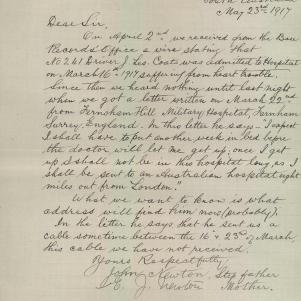 South Australia
May 23rd 1917
Dear Sir,
On April 2nd we received from the Base
Records Office a wire stating that
No 261 Driver J. Les. Coats was admitted to Hospital
on March 16th 1917 suffering from heart trouble.
Since then we heard nothing until last night
when we got a letter written on March 22nd
from Farnham Hill Military Hospital, Farnham
Surrey, England. In this letter he says - "I expect
I shall have to put another week in bed before
the doctor will let me get up, once I get
up I shall not be in this hospital long, as I
shall be sent to an Australian hospital eight
miles out from London."
What we want to know is what
address will find him now (probably).
In the letter he says that he sent us a
cable sometime between the 16 & 23rd of March
this cable we have not received.
Yours Respectfully,
John Newton, Step father
E. J. Newton Mother.